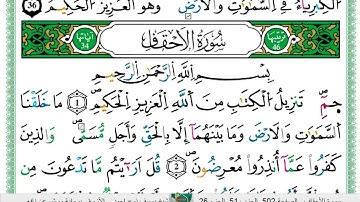 الْكِبْرِيَاءُ فِي السَّمَاوَاتِ وَالْأَرْضِ وَهُوَ الْعَزِيزُ الْحَكِيمُ 36
ترتيبها 46 سُورَةُ الْأَحْقَافِ آياتها 34
بِسْمِ اللَّهِ الرَّحْمَٰنِ الرَّحِيمِ
حمٓ 1 تَنزِيلُ الْكِتَابِ مِنَ اللَّهِ الْعَزِيزِ الْحَكِيمِ مَا خَلَقْنَا
السَّمَاوَاتِ وَالْأَرْضَ وَمَا بَيْنَهُمَا إِلَّا بِالْحَقِّ وَأَجَلٍ مُّسَمًّى وَالَّذِينَ
كَفَرُوا عَمَّا أُنذِرُوا مُعْرِضُونَ 2 قُلْ أَرَأَيْتُم مَّا تَدْعُونَ مِن